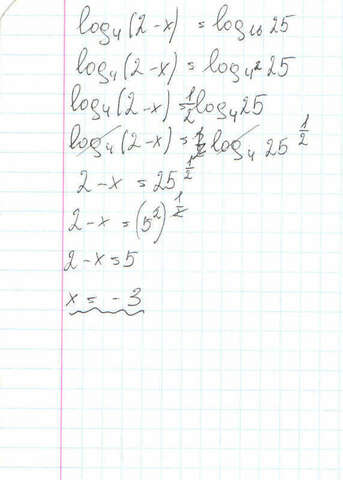 log₄(2-x) = log₁₆ 25
log₄(2-x) = log₄² 25
log₄(2-x) = ½ log₄ 25
log₄(2-x) = log₄ 25^½
2-x = 25^½
2-x = (5²)^½
2-x = 5
x = -3